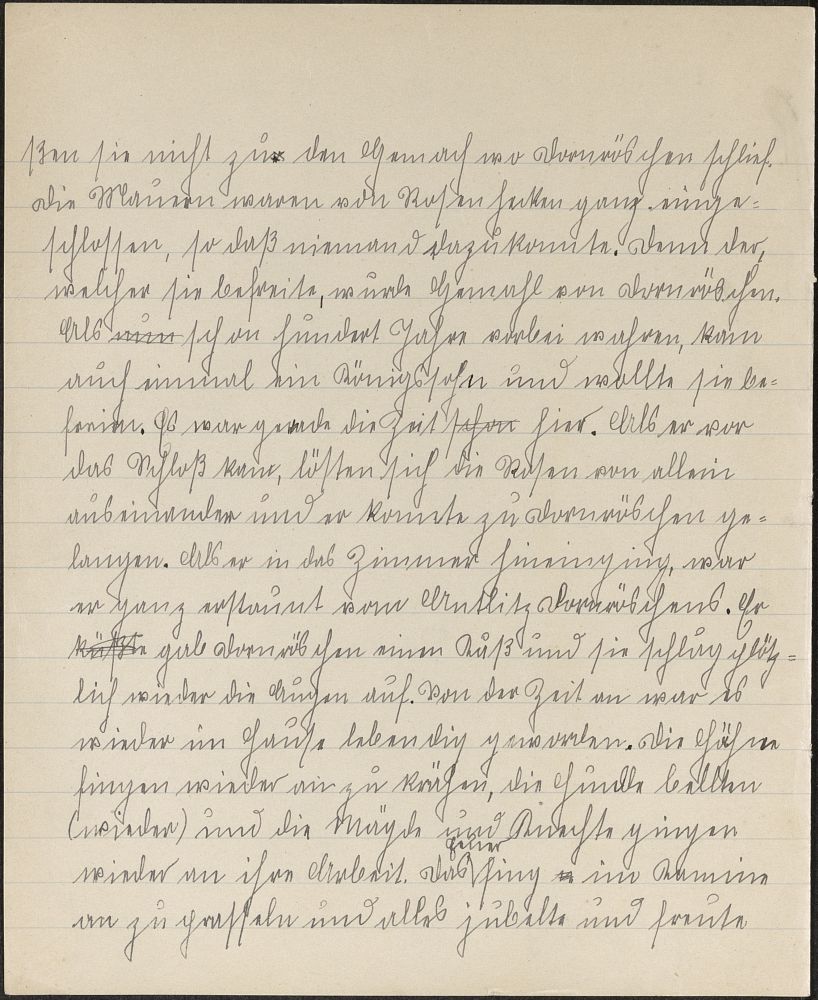 ßen sie nicht zu den Gemach wo Dornröschen schlief.
Die Mauern waren von Rosenhecken ganz einge=
schlossen, so daß niemand dazukonnte. Denn der,
welcher sie befreite, wurde Gemahl von Dornröschen.
Als nun schon hundert Jahre vorbei wahren, kam
auch einmal ein Königssohn und wollte sie be=
freien. Es war gerade die Zeit schon hier. Als er vor
das Schloß kam, lösten sich die Rosen von allein
auseinander und er konnte zu Dornröschen ge=
langen. Als er in das Zimmer hineinging, war
er ganz erstaunt vom Antlitz Dornröschens. Er
küßte gab Dornröschen einen Kuß und sie schlug plötz=
lich wieder die Augen auf. Von der Zeit an war es
wieder im Hause lebendig geworden. Die Hähne
fingen wieder an zu krähen, die Hunde bellten
(wieder) und die Mägde und Knechte gingen
wieder an ihre Arbeit. Das Feuer fing im Kamine
an zu prasseln und alles jubelte und freute